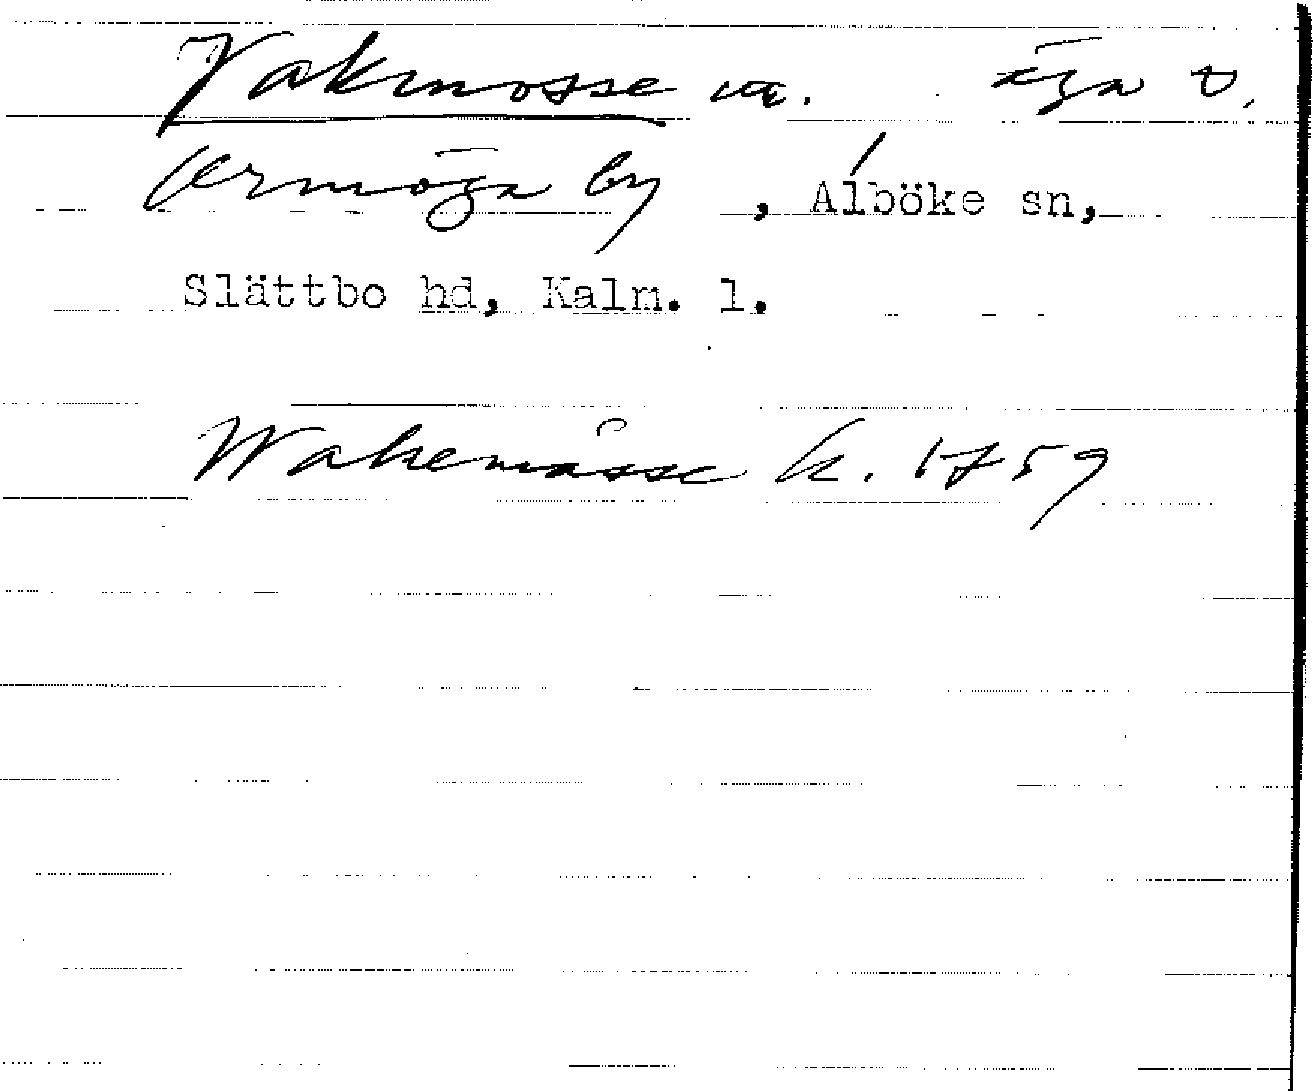 Vakmosse m. äga t.
Ormöga by, Alböke sn,
Slättbo hd, Kalm. l.
Wakemåsse k. 1759